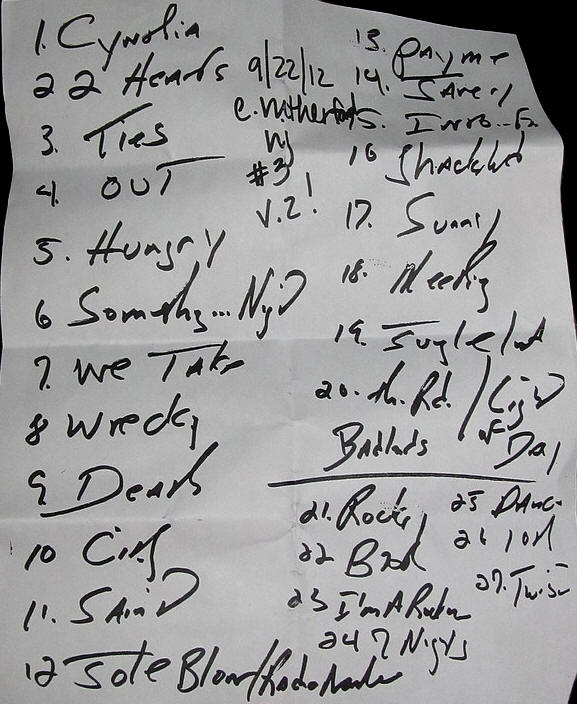 1. Cynthia
2 2 Hearts
3. Ties
4. OUT
5. Hungry
6 Somethg...
7. We Take
8 Wreckg
9 Death
10 City
11. SAint
12 Jole Blon/Radio Nowhere
9/22/12
e. rutherford
NJ
#3
v.2!
13. Pay me
14. Janey
15. Intro..
16 Shackled
17. Sunny
18. Meeting
19. Jungleland
20. Th. Rd. / City
Badlands of Day
21. Rocky
22 BTR
23 I'm A Rocker
24 7 Nights
25 DAnce
26 10th
27. Twist